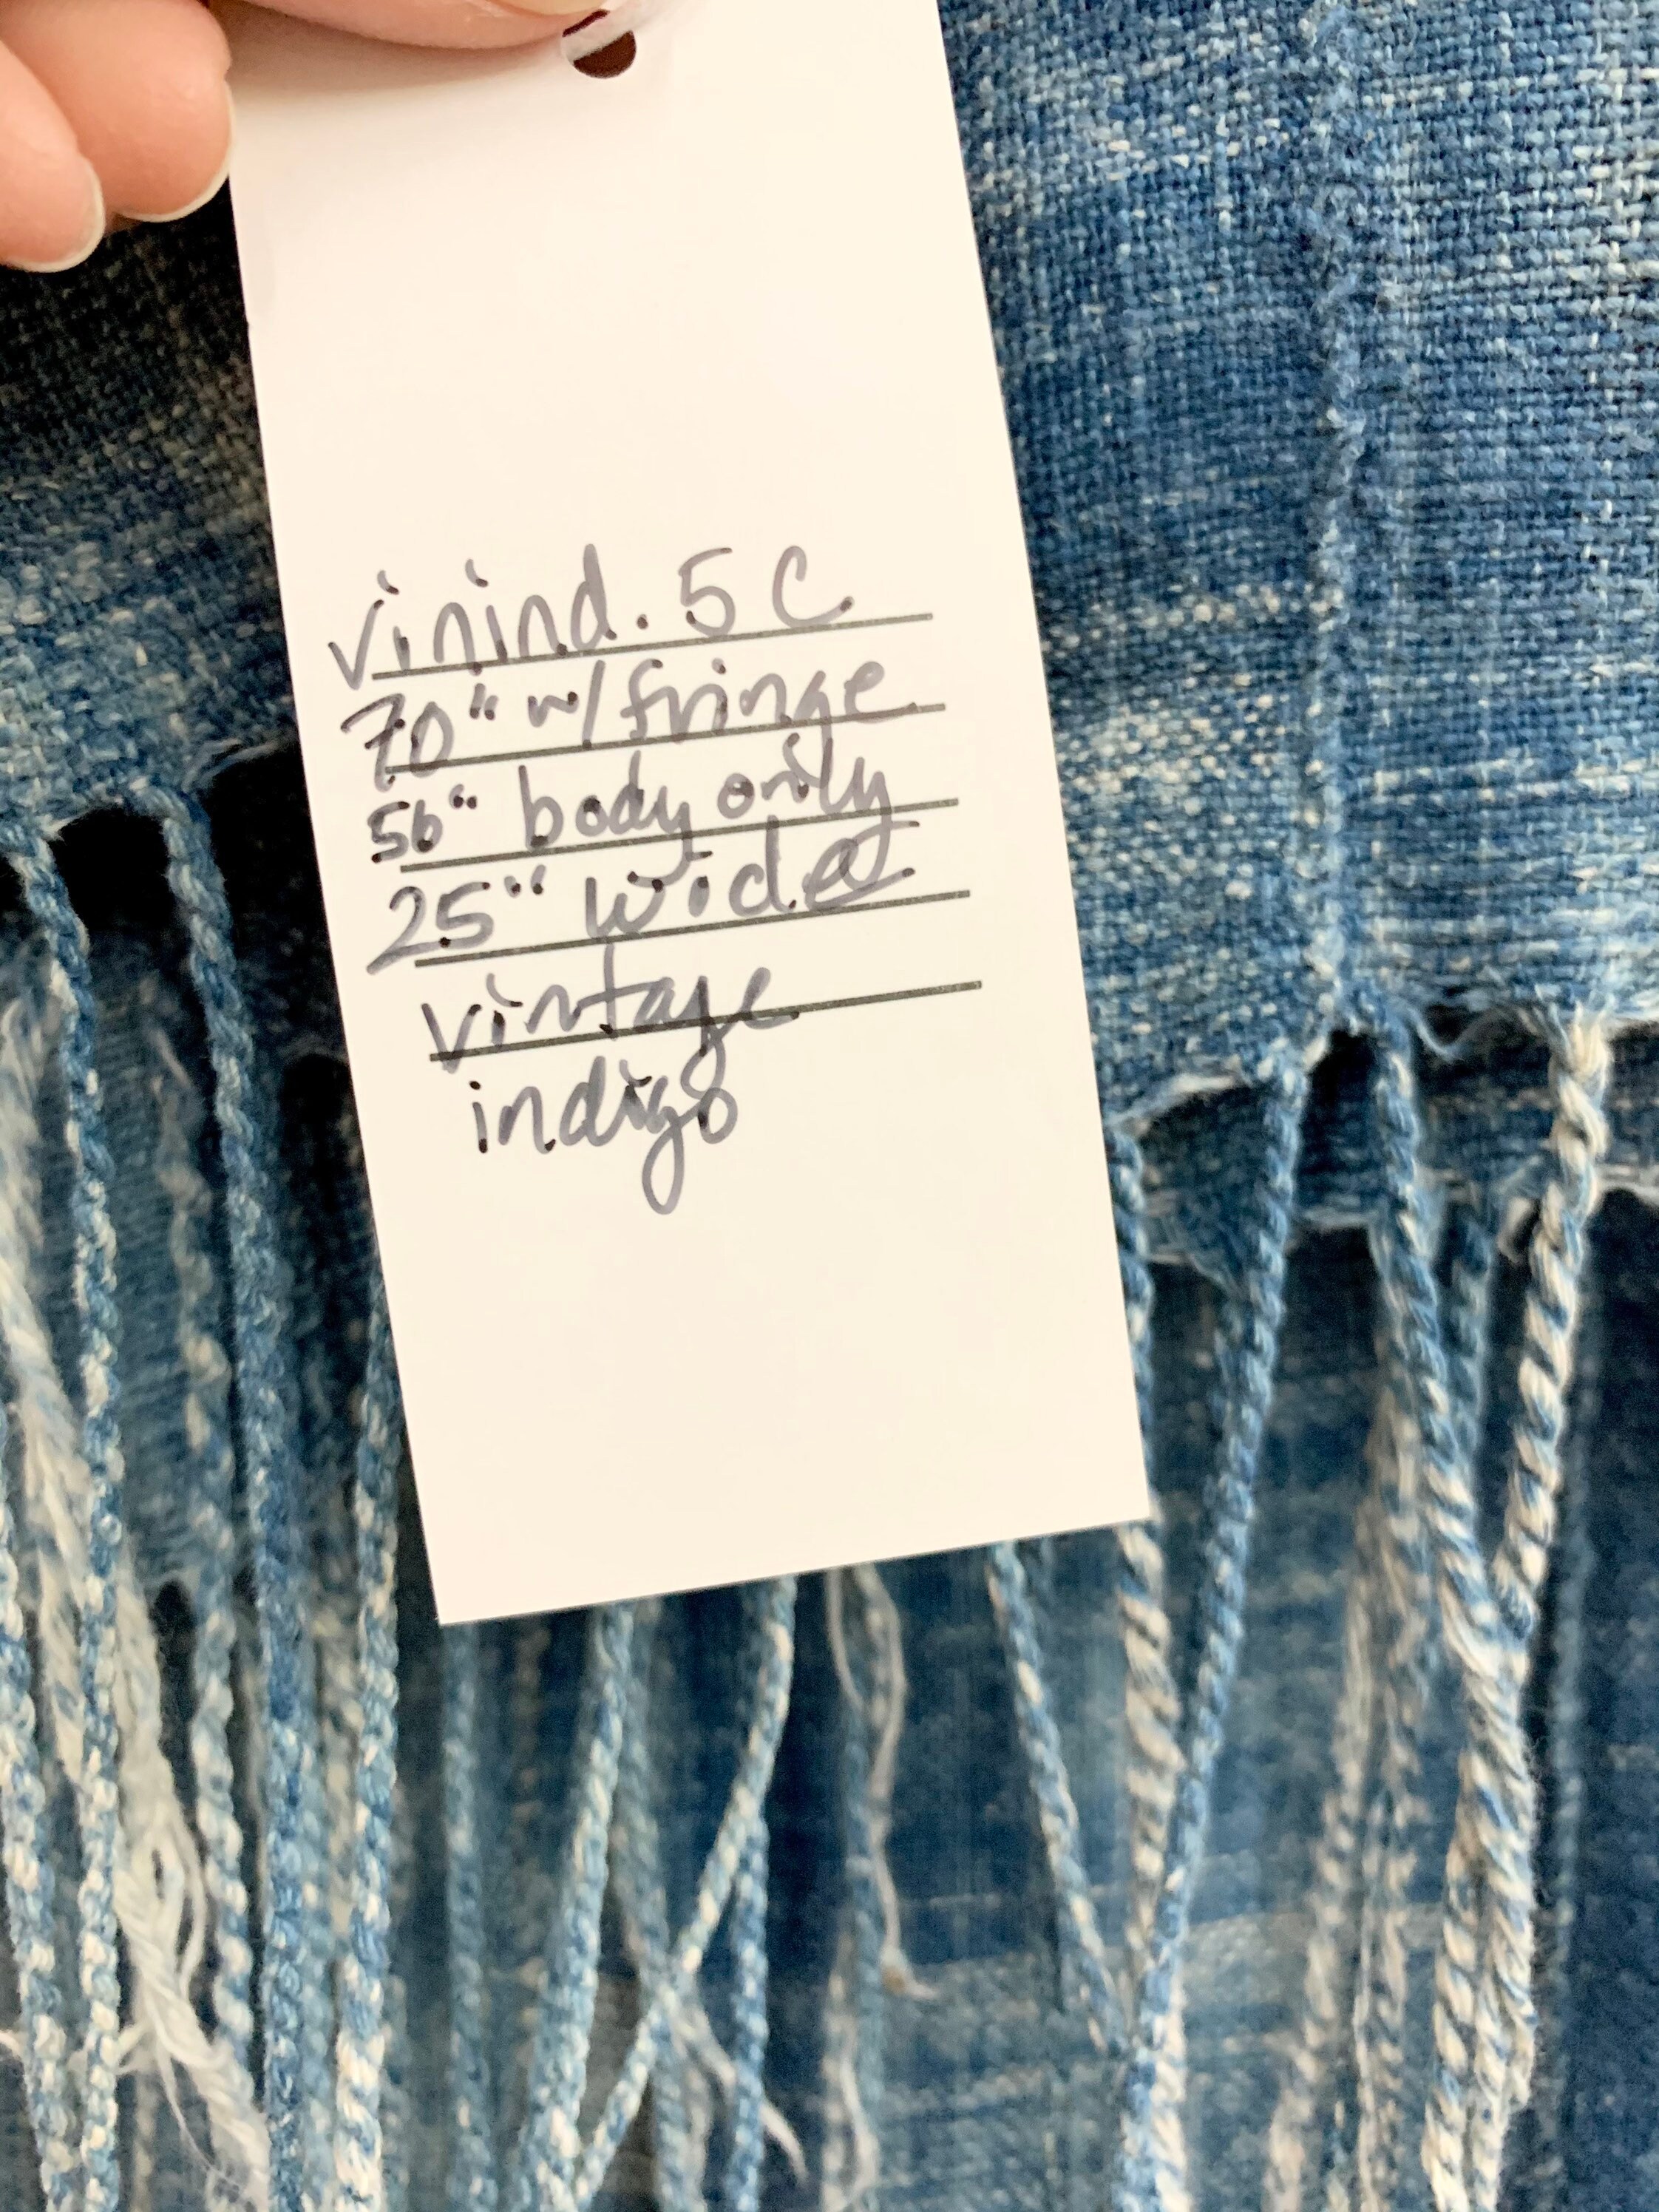 vinind. 5 C
70" w/ fringe
56" body only
25" wide
vintage
indigo